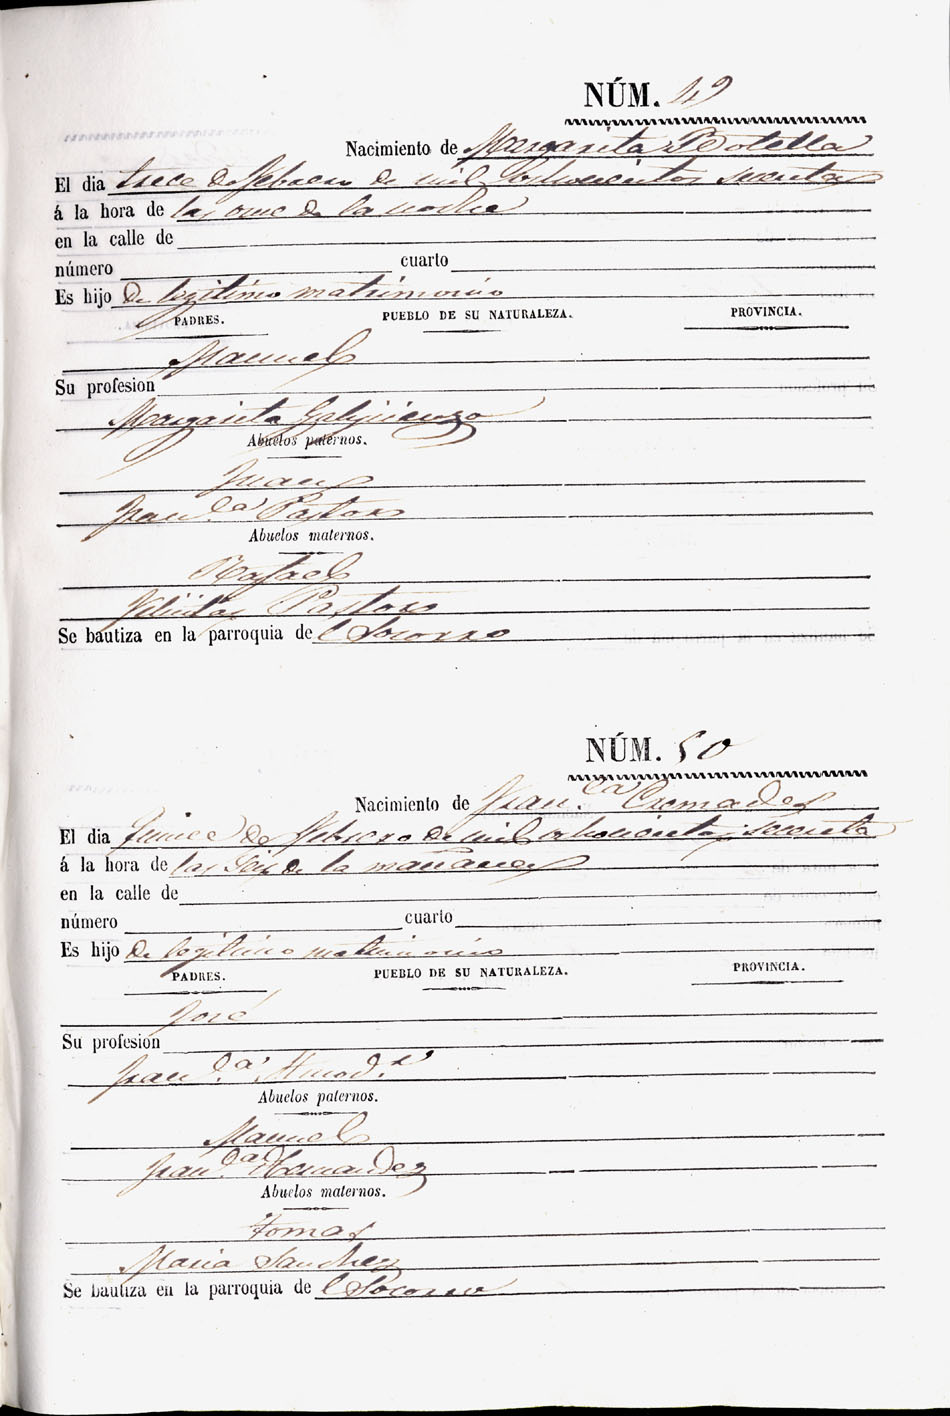 NÚM. 49
Nacimiento de Margarita Botella
El dia trece de Febrero de mil ochocientos sesenta
á la hora de las once de la noche
en la calle de
número cuarto
Es hijo de legitimo matrimonio
PADRES. PUEBLO DE SU NATURALEZA. PROVINCIA.
Manuel
Su profesion
Margarita
Abuelos paternos.
Juan
Fran.ca Pastor
Abuelos maternos.
Rafael
Pastor
Se bautiza en la parroquia de l Socorro
NÚM. 50
Nacimiento de Fran.ca Cremades
El dia quince de Febrero de mil ochocientos sesenta
á la hora de las seis de la mañana
en la calle de
número cuarto
Es hijo de legitimo matrimonio
PADRES. PUEBLO DE SU NATURALEZA. PROVINCIA.
José
Su profesion
Fran.ca
Abuelos paternos.
Manuel
Fran.ca Hernandez
Abuelos maternos.
Tomas
Maria Sanchez
Se bautiza en la parroquia de l Socorro